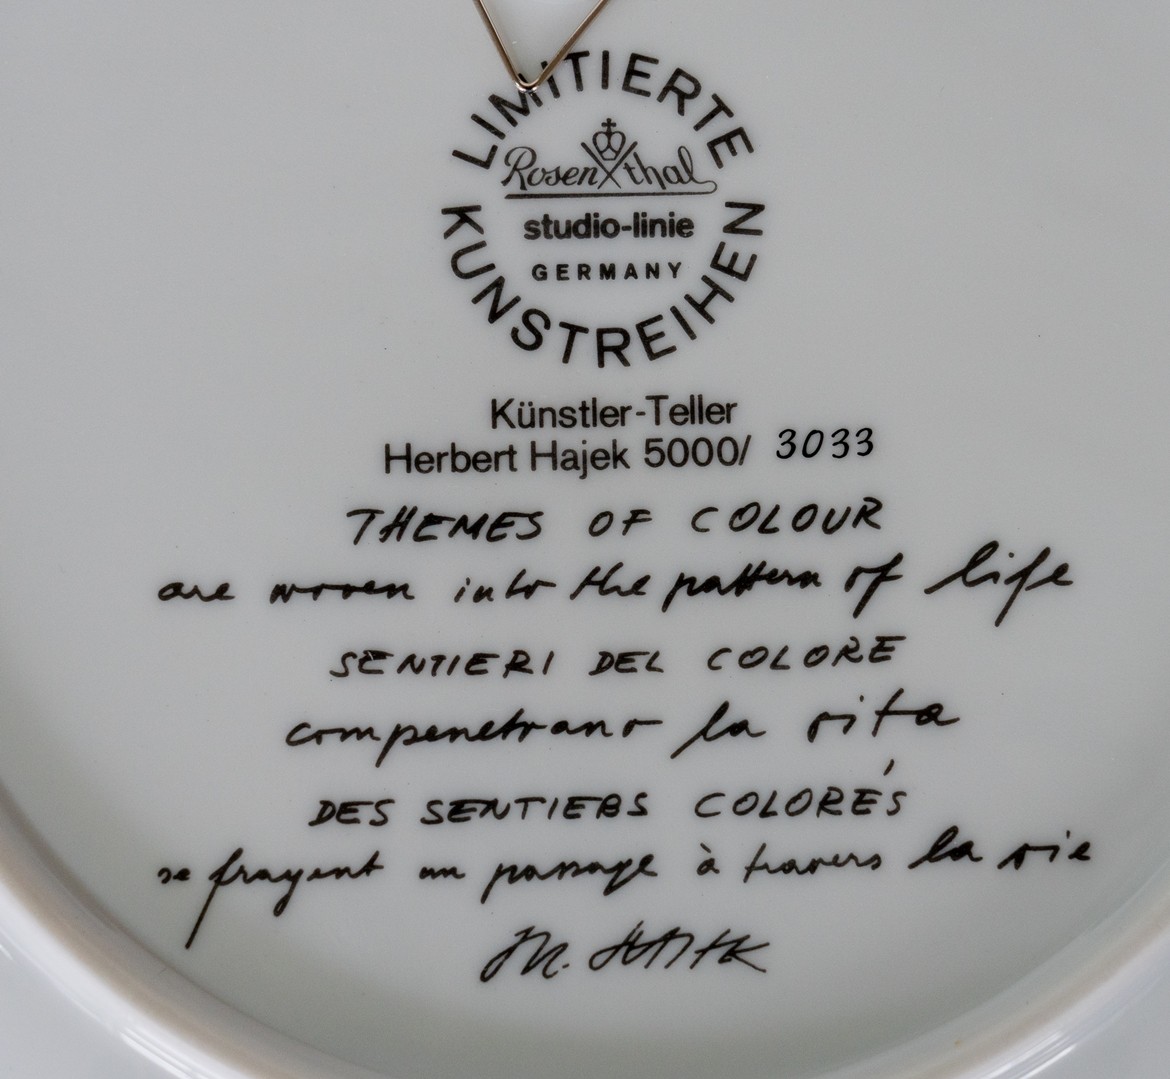 LIMITIERTE
Rosenthal
studio-linie
GERMANY
KUNSTREIHEN
Künstler-Teller
Herbert Hajek 5000/ 3033
THEMES OF COLOUR
are woven into the pattern of life
SENTIERI DEL COLORE
compenetrano la vita
DES SENTIERS COLORÉS
se frayent un passage à travers la vie
H. HAJEK